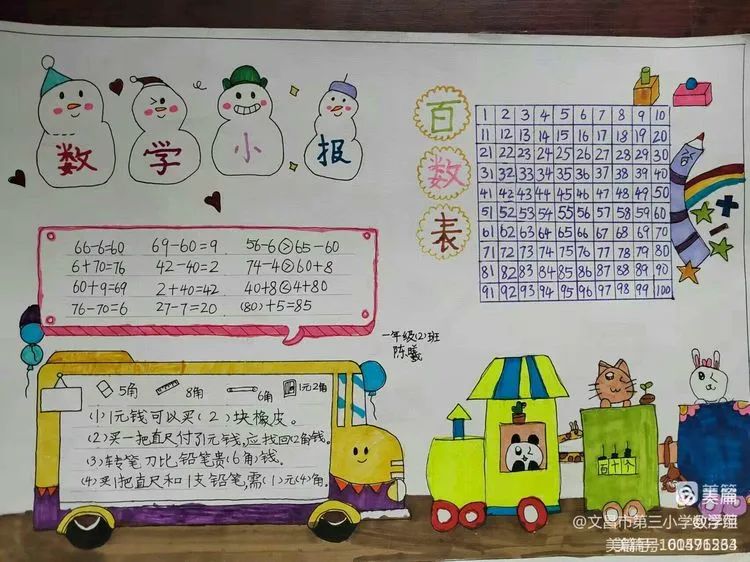 数学小报
百数表
1 2 3 4 5 6 7 8 9 10
11 12 13 14 15 16 17 18 19 20
21 22 23 24 25 26 27 28 29 30
31 32 33 34 35 36 37 38 39 40
41 42 43 44 45 46 47 48 49 50
51 52 53 54 55 56 57 58 59 60
61 62 63 64 65 66 67 68 69 70
71 72 73 74 75 76 77 78 79 80
81 82 83 84 85 86 87 88 89 90
91 92 93 94 95 96 97 98 99 100
66-6=60 69-60=9 56-6>65-60
6+70=76 42-40=2 74-4>60+8
60+9=69 2+40=42 40+8<4+80
76-70=6 27-7=20 (80)+5=85
一年级(2)班
陈曦
5角 8角 6角 1元2角
(1)1元钱可以买(2)块橡皮。
(2)买一把直尺付了1元钱,应找回(2角)钱。
(3)转笔刀比铅笔贵(6角)钱。
(4)买1把直尺和1支铅笔,需(1)元(4)角。
百 十 个
美篇
@文昌市第三小学数学组
美篇号